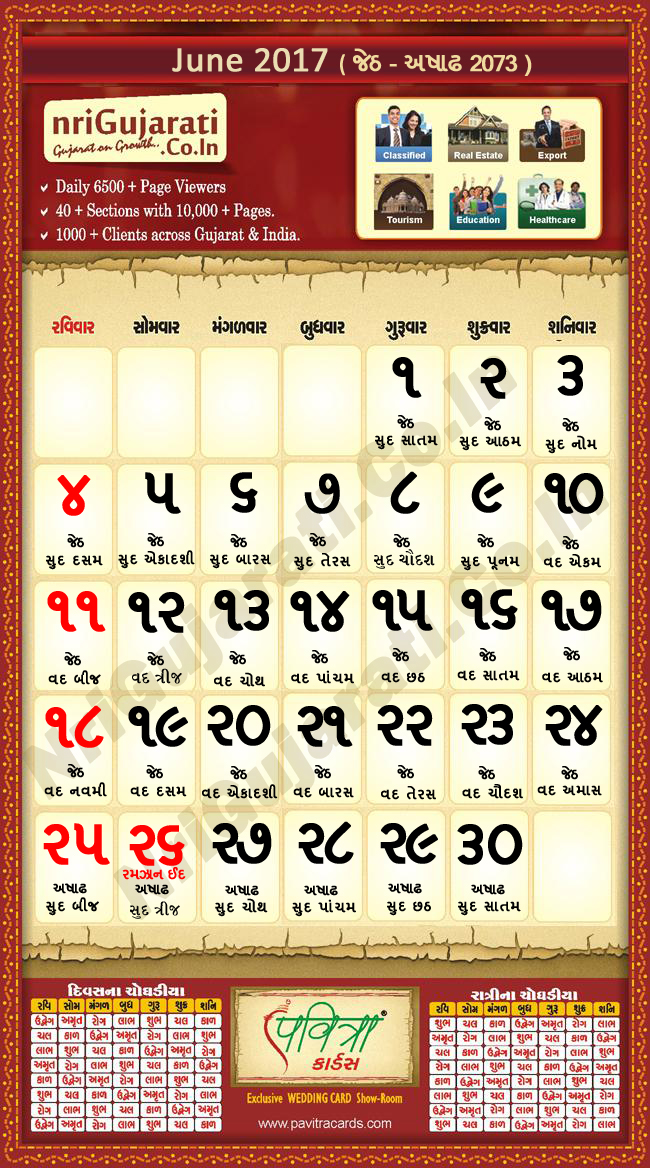 June 2017 ( જેઠ - અષાઢ 2073 )
nriGujarati
Gujarat on Growth..
.Co.In
Daily 6500 + Page Viewers
40 + Sections with 10,000 + Pages.
1000 + Clients across Gujarat & India.
Classified Real Estate Export
Tourism Education Healthcare
રવિવાર સોમવાર મંગળવાર બુધવાર ગુરૂવાર શુક્રવાર શનિવાર
૧ ૨ ૩
જેઠ જેઠ જેઠ
સુદ સાતમ સુદ આઠમ સુદ નોમ
૪ ૫ ૬ ૭ ૮ ૯ ૧૦
જેઠ જેઠ જેઠ જેઠ જેઠ જેઠ જેઠ
સુદ દસમ સુદ એકાદશી સુદ બારસ સુદ તેરસ સુદ ચૌદશ સુદ પૂનમ વદ એકમ
૧૧ ૧૨ ૧૩ ૧૪ ૧૫ ૧૬ ૧૭
જેઠ જેઠ જેઠ જેઠ જેઠ જેઠ જેઠ
વદ બીજ વદ ત્રીજ વદ ચોથ વદ પાંચમ વદ છઠ વદ સાતમ વદ આઠમ
૧૮ ૧૯ ૨૦ ૨૧ ૨૨ ૨૩ ૨૪
જેઠ જેઠ જેઠ જેઠ જેઠ જેઠ જેઠ
વદ નવમી વદ દસમ વદ એકાદશી વદ બારસ વદ તેરસ વદ ચૌદશ વદ અમાસ
૨૫ ૨૬ ૨૭ ૨૮ ૨૯ ૩૦
રમઝાન ઈદ
અષાઢ અષાઢ અષાઢ અષાઢ અષાઢ અષાઢ
સુદ બીજ સુદ ત્રીજ સુદ ચોથ સુદ પાંચમ સુદ છઠ સુદ સાતમ
NriGujarati.Co.In
NriGujarati.Co.In
દિવસના ચોઘડીયા
રવિ સોમ મંગળ બુધ ગુરૂ શુક્ર શનિ
ઉદ્વેગ અમૃત રોગ લાભ શુભ ચલ કાળ
ચલ કાળ ઉદ્વેગ અમૃત રોગ લાભ શુભ
લાભ શુભ ચલ કાળ ઉદ્વેગ અમૃત રોગ
અમૃત રોગ લાભ શુભ ચલ કાળ ઉદ્વેગ
કાળ ઉદ્વેગ અમૃત રોગ લાભ શુભ ચલ
શુભ ચલ કાળ ઉદ્વેગ અમૃત રોગ લાભ
રોગ લાભ શુભ ચલ કાળ ઉદ્વેગ અમૃત
ઉદ્વેગ અમૃત રોગ લાભ શુભ ચલ કાળ
પવિત્રા®
કાર્ડસ
Exclusive WEDDING CARD Show-Room
www.pavitracards.com
રાત્રીના ચોઘડીયા
રવિ સોમ મંગળ બુધ ગુરૂ શુક્ર શનિ
શુભ ચલ કાળ ઉદ્વેગ અમૃત રોગ લાભ
અમૃત રોગ લાભ શુભ ચલ કાળ ઉદ્વેગ
ચલ કાળ ઉદ્વેગ અમૃત રોગ લાભ શુભ
રોગ લાભ શુભ ચલ કાળ ઉદ્વેગ અમૃત
કાળ ઉદ્વેગ અમૃત રોગ લાભ શુભ ચલ
લાભ શુભ ચલ કાળ ઉદ્વેગ અમૃત રોગ
ઉદ્વેગ અમૃત રોગ લાભ શુભ ચલ કાળ
શુભ ચલ કાળ ઉદ્વેગ અમૃત રોગ લાભ